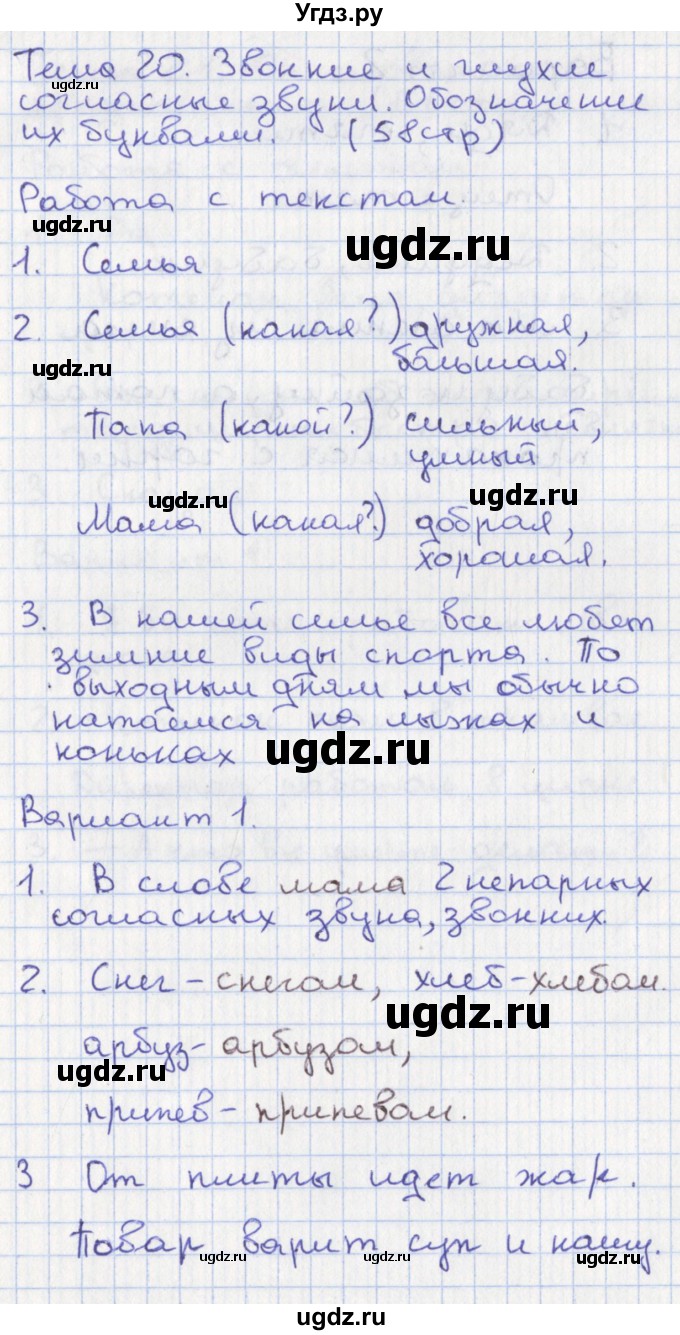 Угдз.ру
Тема 20. Звонкие и глухие
согласные звуки. Обозначение
их буквами. (58стр)
Работа с текстом.
ugdz.ru
ugdz.ru
1. Семья
2. Семья (какая?) дружная,
ugdz.ru
большая.
Папа (какой?) сильный,
умный
ugdz.ru
ugdz.ru
Мама (какая?) добрая,
хорошая.
3. В нашей семье все любят
зимние виды спорта. По
выходным дням мы обычно
катаемся на лыжах и
коньках
ugdz.ru
Вариант 1.
1. В слове мама 2 непарных
согласных звука, звонких.
2. Снег - снегом, хлеб - хлебом.
ugdz.ru
арбуз - арбузом,
ugdz.ru
припев - припевом.
3 От плиты идет жар.
Повар варит суп и кашу.
ugdz.ru
ugdz.ru
ugdz.ru
ugdz.ru